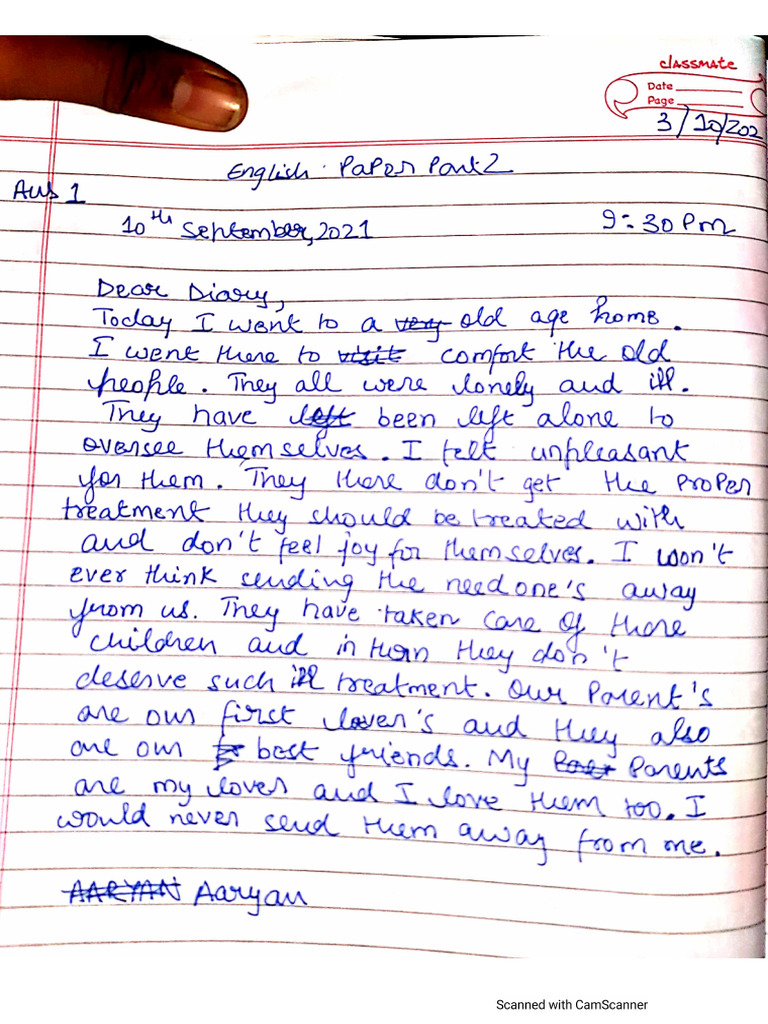 classmate
Date
Page
3/10/202
English Paper Part 2
Ans 1
10th September, 2021 9:30 Pm
Dear Diary,
Today I went to a very old age home.
I went there to visit comfort the old
people. They all were lonely and ill.
They have left been left alone to
oversee themselves. I felt unpleasant
for them. They there don't get the proper
treatment they should be treated with
and don't feel joy for themselves. I won't
ever think sending the need one's away
from us. They have taken care of there
children and in turn they don't
deserve such ill treatment. Our Parent's
are our first lover's and they also
are our best friends. My Parents
are my lover and I love them too. I
would never send them away from me.
AARYAN Aaryan
Scanned with CamScanner